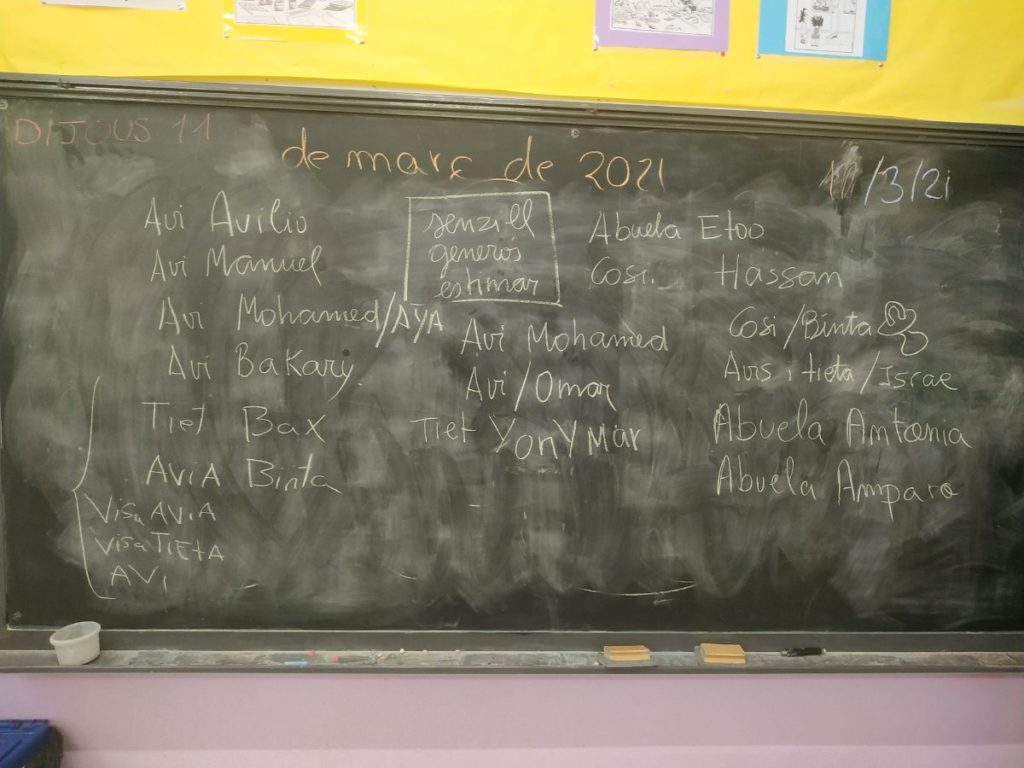 DIJOUS 11 de març de 2021
11/3/21
Avi Avilio
Avi Manuel
Avi Mohamed/AYA
Avi BaKary
Tiet Bax
AViA Binta
Visa AViA
Visa TiETA
AVi
senzill
generós
estimar
Avi Mohamed
Avi/Omar
Tiet YonY Mar
Abuela Etoo
Cosi Hassan
Cosi/Binta
Avis i tieta/Israe
Abuela Antonia
Abuela Amparo